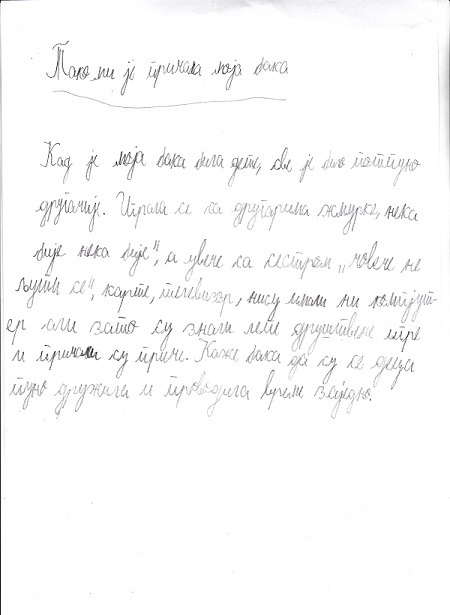 Тако ми је причала моја бака
Кад је моја бака била дете, све је било потпуно
другачије. Играла се са другарима жмурке, нека
бије нека бије", а увече са сестром „човече не
љути се", карте, телевизор, нису имали ни компјут-
ер али зато су знали лепе друштвене игре
и причали су приче. Каже бака да су се деца
пуно дружила и проводила време заједно.